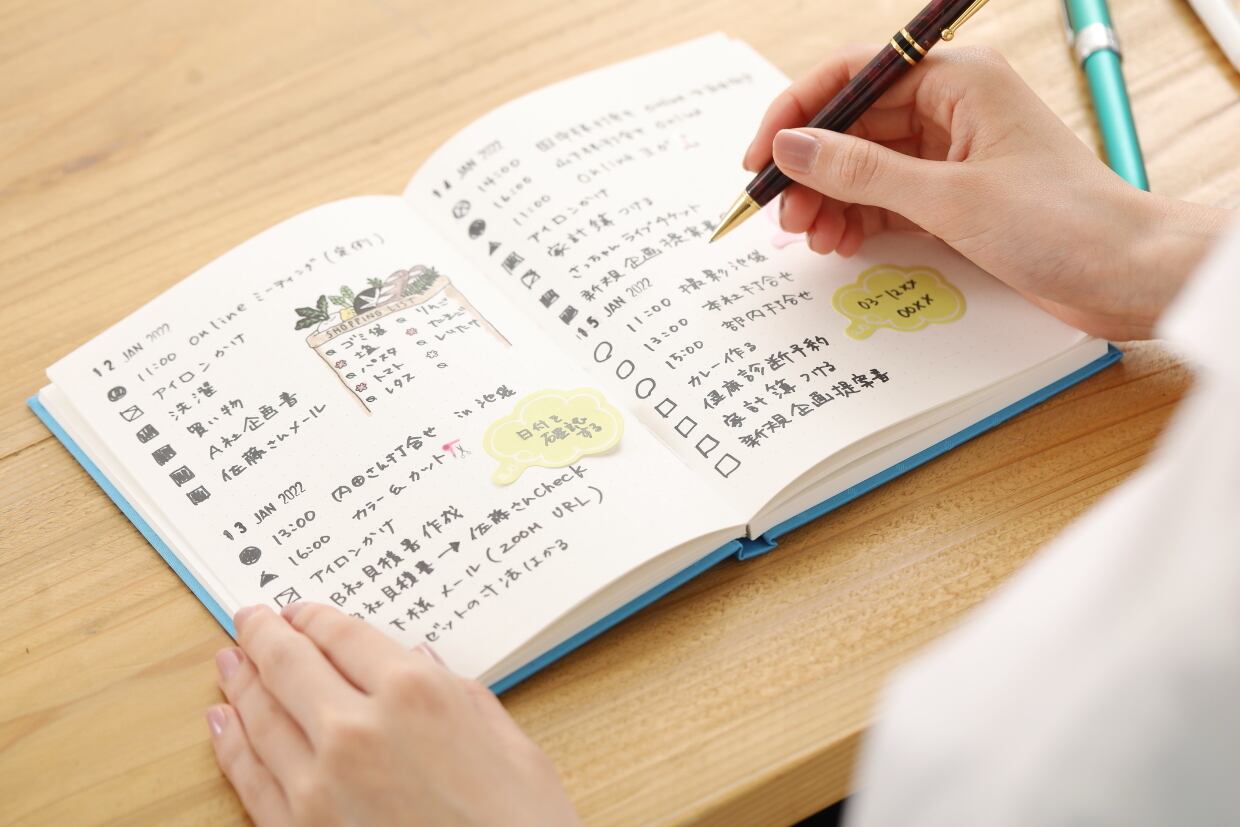 12 JAN 2022
11:00 Online ミーティング(定例)
アイロンかけ
洗濯
買い物
A社企画書
佐藤さんメール
SHOPPING LIST
ゴミ袋
塩
パスタ
トマト
レタス
りんご
たまご
しいたけ
13 JAN 2022
13:00 内田さん打合せ in 池袋
16:00 カラー&カット
アイロンかけ
B社見積書作成
社見積書 → 佐藤さんCheck
下様 メール(ZOOM URL)
ゼットの寸法はかる
日付を
確認
する
14 JAN 2022
14:00
16:00 Online
11:00 Online
アイロンかけ
家計簿つける
さっちゃんライブチケット
新規企画提案書
15 JAN 2022
11:00 撮影 池袋
13:00 本社打合せ
15:00 部内打合せ
カレー作る
健康診断予約
家計簿つける
新規企画提案書
03-12XX
00XX